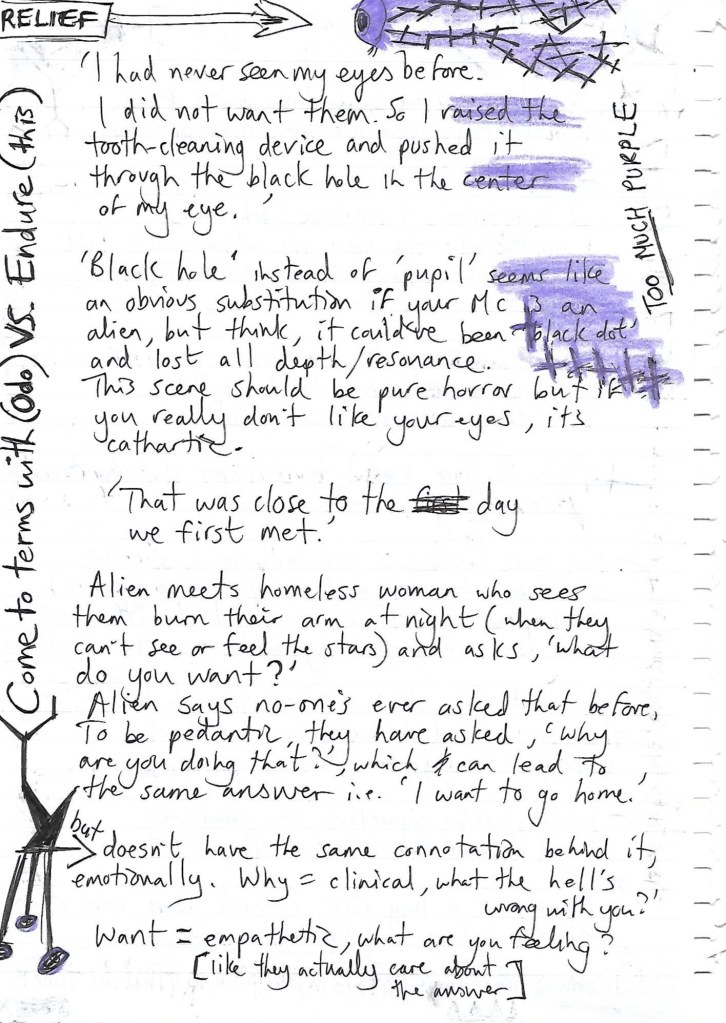 RELIEF
'I had never seen my eyes before.
I did not want them. So I raised the
tooth-cleaning device and pushed it
through the black hole in the center
of my eye.'
TOO MUCH PURPLE
'Black hole' instead of 'pupil' seems like
an obvious substitution if your MC is an
alien, but think, it could've been 'black dot'
and lost all depth/resonance.
This scene should be pure horror but if
you really don't like your eyes, it's
cathartic.
'That was close to the first day
we first met.'
Alien meets homeless woman who sees
them burn their arm at night (when they
can't see or feel the stars) and asks, 'what
do you want?'
Alien says no-one's ever asked that before,
To be pedantic, they have asked, 'Why
are you doing that?', which can lead to
the same answer i.e. 'I want to go home.',
but
doesn't have the same connotation behind it,
emotionally. Why = clinical, what the hell's
wrong with you?'
Want = empathetic, what are you feeling?
[like they actually care about
the answer]
Come to terms with (Odo) VS. Endure (this)